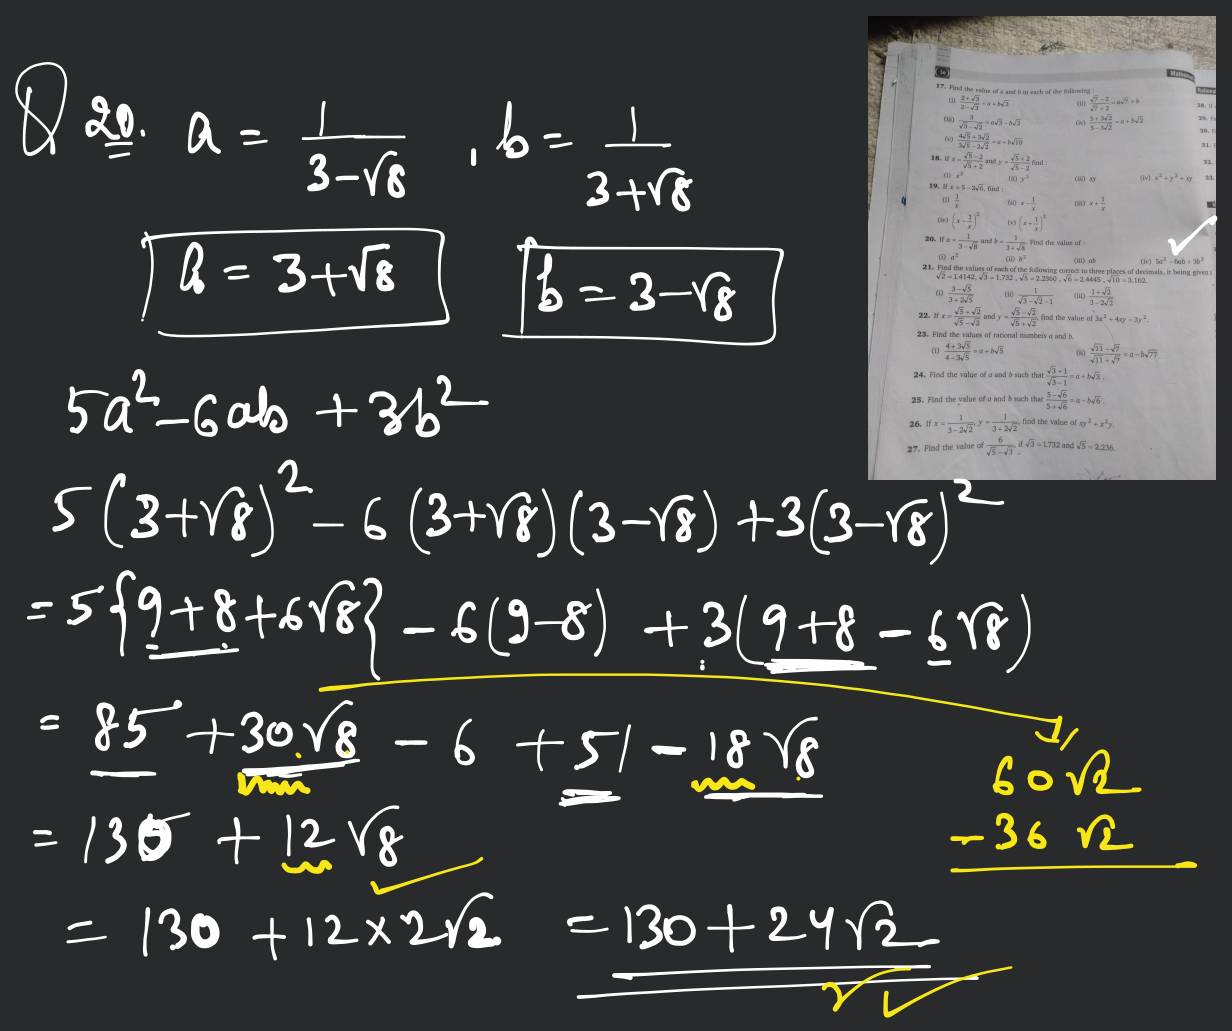 Q 20. a = 1/(3-√8) , b = 1/(3+√8)
a = 3+√8
b = 3-√8
5a²-6ab+3b²
5(3+√8)²-6(3+√8)(3-√8)+3(3-√8)²
=5{9+8+6√8}-6(9-8)+3(9+8-6√8)
=85+30√8-6+51-18√8
60√2
-36√2
=130+12√8
=130+12×2√2 =130+24√2
17. Find the value of a and b in each of the following :
(i) (2+√3)/(2-√3) = a+b√3 (ii) (√7-2)/(√7+2) = a√7+b
(iii) 3/(√3-√2) = a√3-b√2 (iv) (5+3√2)/(5-3√2) = a+b√2
(v) (4√5+3√2)/(3√5-2√2) = a+b√10
18. If x = (√5-2)/(√5+2) and y = (√5+2)/(√5-2) find :
(i) x² (ii) y² (iii) xy (iv) x²+y²+xy
19. If x = 5-2√6, find :
(i) 1/x (ii) x-1/x (iii) x+1/x
(iv) (x-1/x)² (v) (x+1/x)²
20. If a = 1/(3-√8) and b = 1/(3+√8) Find the value of :
(i) a² (ii) b² (iii) ab (iv) 5a²-6ab+3b²
21. Find the values of each of the following correct to three places of decimals, it being given
√2 = 1.4142, √3 = 1.732, √5 = 2.2360, √6 = 2.4445, √10 = 3.162.
(i) (3-√5)/(3+2√5) (ii) 1/(√3-√2-1) (iii) (1+√2)/(3-2√2)
22. If x = (√5+√2)/(√5-√2) and y = (√5-√2)/(√5+√2), find the value of 3x²+4xy-3y².
23. Find the values of rational numbers a and b.
(i) (4+3√5)/(4-3√5) = a+b√5 (ii) (√11-√7)/(√11+√7) = a-b√77
24. Find the value of a and b such that (√3-1)/(√3+1) = a+b√3.
25. Find the value of a and b such that (5-√6)/(5+√6) = a-b√6.
26. If x = 1/(3-2√2), y = 1/(3+2√2), find the value of xy²+x²y.
27. Find the value of 6/(√5-√3), if √3 = 1.732 and √5 = 2.236.